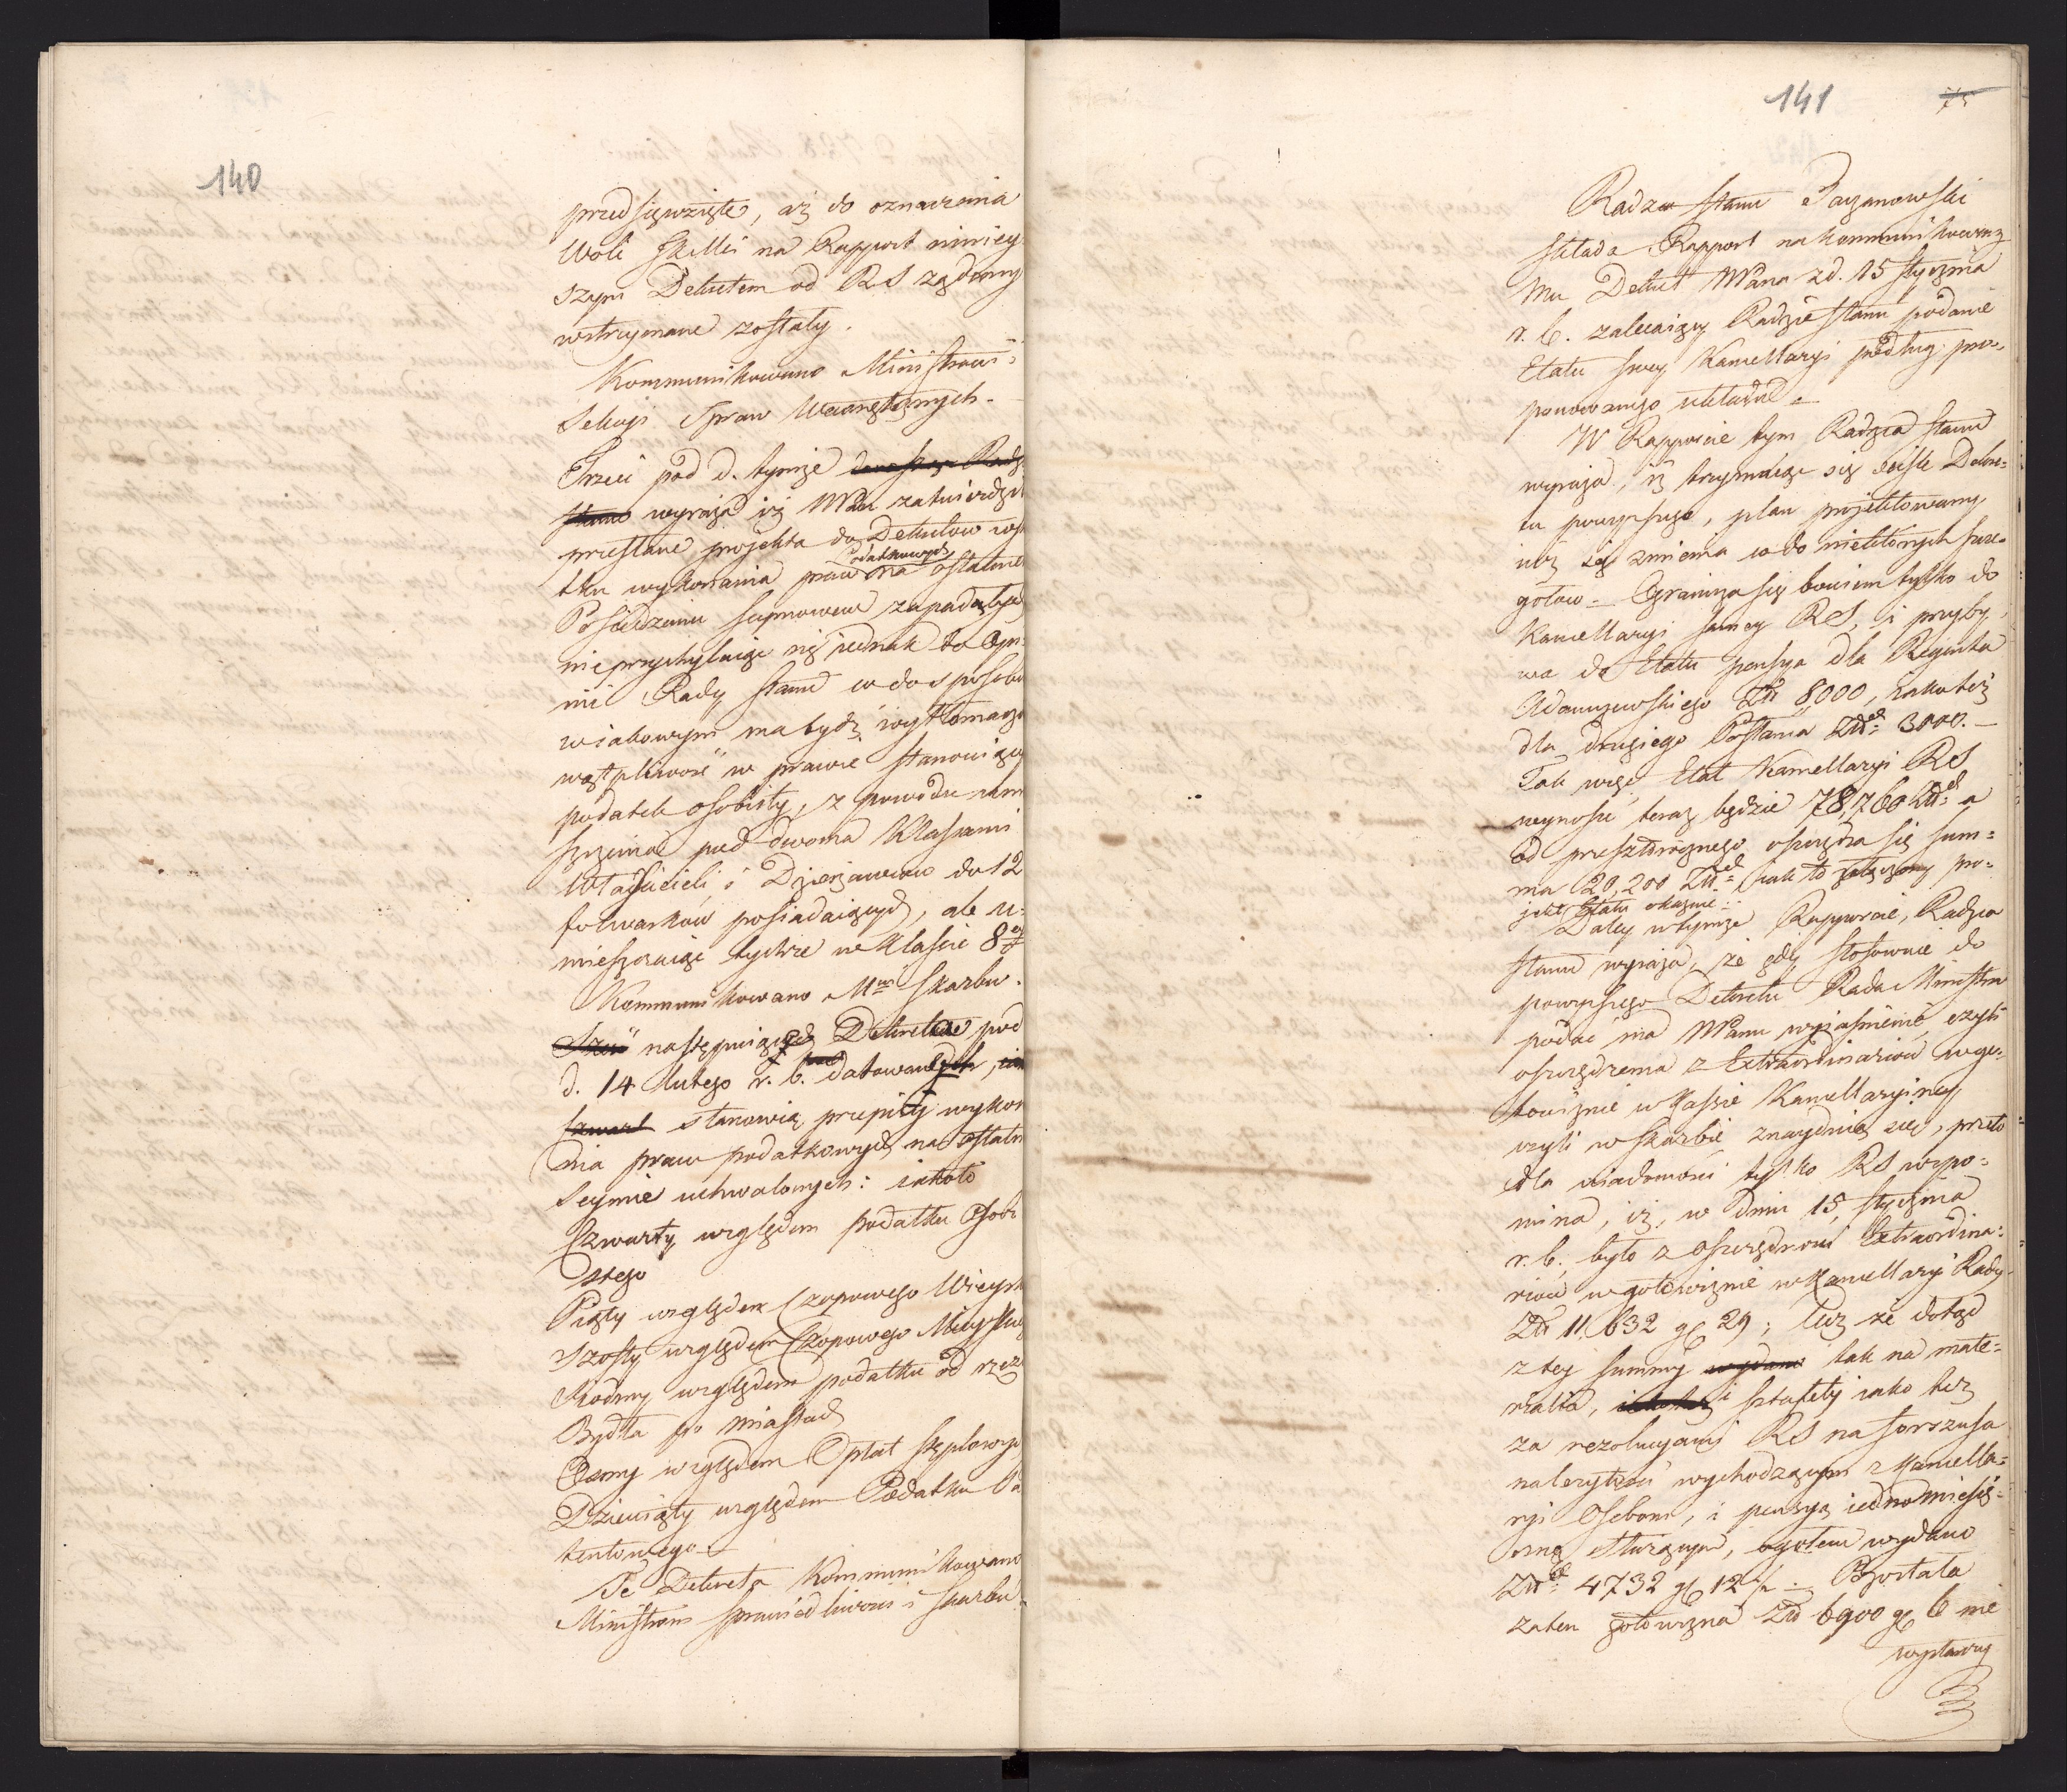 140
przedsięwzięte, aż do oznaczenia
Woli JKMci na Rapport niniey
szym Dekretem od RS żądany
wstrzymane zostały.
Kommunikowano Ministrowi
Sekcyi Spraw Wewnętrznych.
Trzeci pod d. tymże
wyraża iż MPan zatwierdził
przesłane projekta do Dekretow wzgl
tku wykonania praw podatkowych na ostatniem
Posiedzeniu Seymowem zapadłych
nieprzychylaiąc się iednak do Opi-
nii Rady Stanu co do sposobu
w iakowym ma bydź wytłomaczo
wątpliwość w prawie stanowiącym
podatek osobisty, z powodu umie
szczenia pod dwoma Klassami
Właścicieli i Dzierżawcow do 12
folwarków posiadaiących, ale u-
mieszczaiąc tychże w Klassie 8ey
Kommunikowano Mwi Skarbu.
następuiących Dekretów pod
d. 14 lutego r. b. datowanych,
stanowią przepisy wykona
nia praw podatkowych na ostatn
Seymie uchwalonych: iakoto
Czwarty względem podatku Osobi
stego
Piąty względem Czopowego Wieysk
Szosty względem Czopowego Mieyskieg
Siodmy względem podatku od rzezi
Bydła po miastach
Osmy względem Opłat stęplowych
Dziewiąty względem Podatku Pa
tentowego
Te Dekreta Kommunikowano
Ministrom Sprawiedliwości i Skarbu.
141
75
Radzca Stanu
Składa Rapport na kommunikowany
mu Dekret MPana z d. 15 Stycznia
r. b. zalecaiący Radzie Stanu podanie
Etatu swey Kancellaryi podług pro-
ponowanego układu.
W Rapporcie tym Radzca Stanu
wyraża, iż trzymaiąc się ściśle Dekre-
tu powyższego, plan projektowany
iuż się zmienia co do niektórych szcze-
gołow. Ogranicza się bowiem tylko do
Kancellaryi samey RS, i przyby
wa do Etatu pensya dla Rejenta
Adamczewskiego Złt 8,000, iako też
dla drugiego Posłańca Złtch 3000.
Tak więc Etat Kancellaryi RS
wynosić teraz będzie 78,760 Złtch a
od przeszłorocznego oszczędza się sum-
ma 20,200 Złtch iak to załączony pro-
jekt Etatu okazuie.
Daley w tymże Rapporcie, Radzca
Stanu wyraża, że gdy stosownie do
powyższego Dekretu Rada Ministrow
podać ma MPanu wyiaśnienie, czyli
oszczędzenia z Extraordinariow w go-
towiznie w Kassie Kancellaryiney
czyli w Skarbie znayduią się, przeto
dla wiadomości tylko RS wspo-
mina, iż, w dniu 15, Stycznia
r. b., było z oszczędności Extraordina-
riow w gotowiznie w Kancellaryi Rady
Złt 11,632 gr 29; lecz że dotąd
z tey summy tak na mate-
riałia, i sztafety iako też
za rezolucyami RS na forszusa
należytość wychodzącym z Kancella-
ryi Osobom, i pensyą iednomiesię-
czną służącym, ogołem wydano
Złtch 4732 gr 12. Pozostała
zatem gotowizna Złt 6900 gr 6 nie
wystarczy